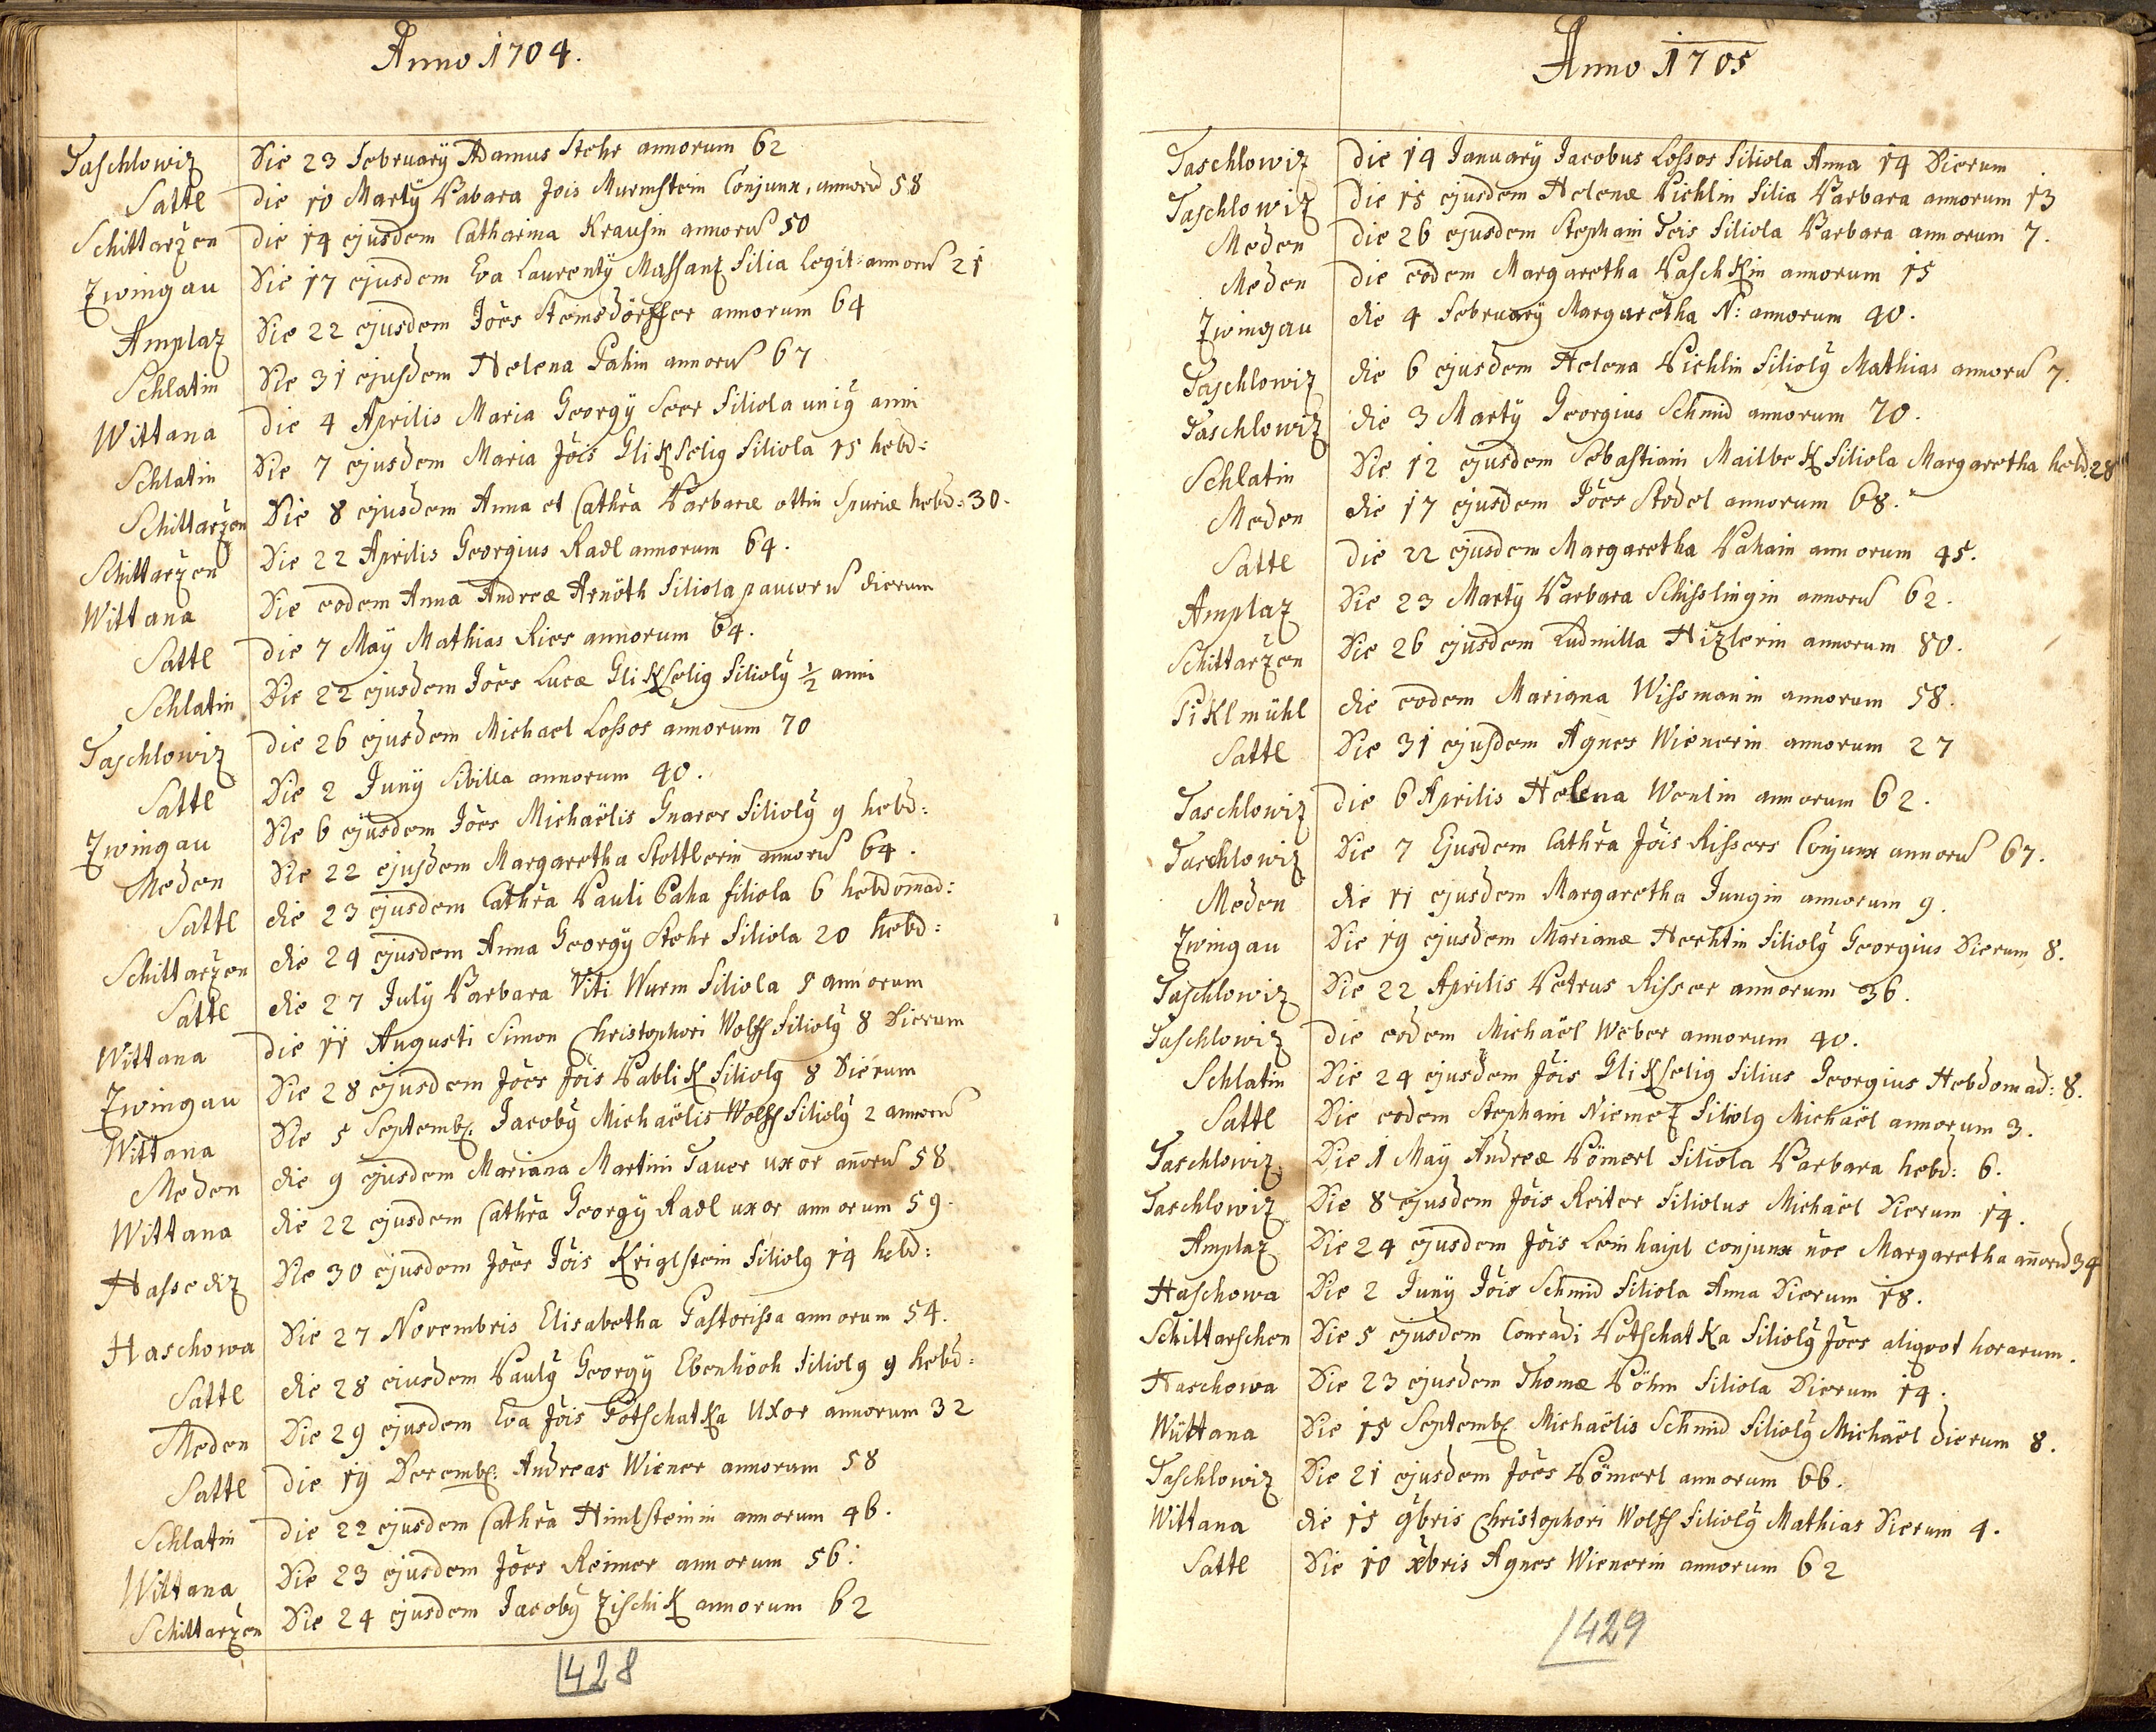 Anno 1704.
Taschlowiz Die 23 Februarÿ Adamus Stehr annorum 62
Sattl die 10 Martÿ Babara Jois Murmstein Conjunx, annorũ 58
Schittarzen die 14 ejusdem Catharina Krausin annorũ 50
Zwingau Die 17 ejusdem Eva Laurentÿ Massanz filia legit: annorũ 21
Amplaz Die 22 ejusdem Jões Stemsdörffer annorum 64
Schlatin Die 31 ejusdem Helena Pahin annorũ 67
Wittana die 4 Aprilis Maria Georgÿ Seer filiola uniꝰ anni
Schlatin Die 7 ejusdem Maria Jöis Glikselig filiola 15 hebd:
Schittarzen Die 8 ejusdem Anna et Cathr̃a Barbaræ ottin Spuriæ hebd: 30.
Schittarzen Die 22 Aprilis Georgius Radl annorum 64.
Wittana Die eodem Anna Andreæ Arnöth filiola paucorũ dierum
Sattl die 7 Maÿ Mathias Rier annorum 64.
Schlatin Die 22 ejusdem Jões Lucæ Glikselig filiolꝰ ½ anni
Taschlowiz die 26 ejusdem Michael Lossos annorum 70
Sattl Die 2 Junÿ Sibilla annorum 40.
Zwingau Die 6 ejusdem Jões Michaëlis Gnarer filiolꝰ 9 hebd:
Meden Die 22 ejusdem Margaretha Stottlerin annorũ 64.
Sattl die 23 ejusdem Cathr̃a Pauli Paha filiola 6 hebdom̃ad:
Schittarzen die 24 ejusdem Anna Georgÿ Stehr filiola 20 hebd:
Sattl die 27 Julÿ Barbara Viti Wurm filiola 8 annorum
Wittana die 11 Augusti Simon Christophori Wolff filiolꝰ 8 Dierum
Zwingau Die 28 ejusdem Jões Jõis Pablik filiolꝰ 8 Dierum
Wittana Die 5 Septemb. Jacobꝰ Michaëlis Wolff filiolꝰ 2 annorũ
Meden die 9 ejusdem Mariana Martini Tauer uxor añorũ 58
Wittana die 22 ejusdem Cathr̃a Georgÿ Radl uxor annorum 59.
Hassediz Die 30 ejusdem Jões Jõis Kriglstein filiolꝰ 14 hebd:
Haschowa Die 27 Novembris Elisabetha Pastorissa annorum 54.
Sattl die 28 eiusdem Paulꝰ Georgÿ Ebenhöch filiolꝰ 9 hebd:
Meden Die 29 ejusdem Eva Jöis Potschatka Uxor annorum 32
Sattl die 19 Decemb. Andreas Wiener annorum 58
Schlatin die 22 ejusdem Cathr̃a Himlsteinin annorum 46.
Wittana Die 23 ejusdem Jões Reimer annorum 56.
Schittarzen Die 24 ejusdem Jacobꝰ Zischik annorum 62
1428
Anno 1705
Taschlowiz die 14 Januarÿ Jacobus Lossos filiola Anna 14 Dierum
Taschlowiz die 15 ejusdem Helenæ Pichlin filia Barbara annorum 13
Meden die 26 ejusdem Stephani Teis filiola Barbara annorum 7.
Meden die eodem Margaretha Paschkin annorum 15
Zwingau die 4 Februarÿ Margaretha N: annorum 40.
Taschlowiz die 6 ejusdem Helena Pichlin filiolꝰ Mathias annorũ 7.
Taschlowiz die 3 Martÿ Georgius Schmid annorum 70.
Schlatin Die 12 ejusdem Sebastiani Mailbek filiola Margaretha hebd: 28
Meden die 17 ejusdem Jões Stodel annorum 68.
Sattl die 22 ejusdem Margaretha Pahain annorum 45.
Amplaz Die 23 Martÿ Barbara Schisslingin annorũ 62.
Schittarzen Die 26 ejusdem Ludmilla Hizlerin annorum 80.
Piklmühl die eodem Mariana Wissmanin annorum 58.
Sattl Die 31 ejusdem Agnes Wienerin annorum 27
Taschlowiz die 6 Aprilis Helena Wenlin annorum 62.
Taschlowiz Die 7 Ejusdem Cathr̃a Jöis Rissers Conjunx annorũ 67.
Meden die 11 ejusdem Margaretha Jungin annorum 9.
Zwingau Die 19 ejusdem Marianæ Hechtin filiolꝰ Georgius Dierum 8.
Taschlowiz Die 22 Aprilis Petrus Risser annorum 36.
Taschlowiz die eodem Michaël Weber annorum 40.
Schlatin Die 24 ejusdem Jöis Glikselig filius Georgius Hebdomad: 8.
Sattl Die eodem Stephani Niemez filiolꝰ Michaël annorum 3.
Taschlowiz Die 1 Maÿ Andreæ Pömerl filiola Barbara hebd: 6.
Taschlowiz Die 8 ejusdem Jöis Reiter filiolus Michaël Dierum 14.
Amplaz Die 24 ejusdem Jöis Leinhaipl conjunx nõe Margaretha añorũ 34
Haschowa Die 2 Junÿ Jöis Schmid filiola Anna Dierum 18.
Schittarschen Die 5 ejusdem Conradi Potschatka filiolꝰ Jões aliqvot horarum.
Haschowa Die 23 ejusdem Thomæ Böhm filiola Dierum 14.
Wüttana Die 15 Septemb Michaëlis Schmid filiolꝰ Michaël dierum 8.
Taschlowiz Die 21 ejusdem Jões Pömerl annorum 66.
Wittana die 15 9bris Christophori Wolff filiolꝰ Mathias Dierum 4.
Sattl Die 10 xbris Agnes Wienerin annorum 62
1429